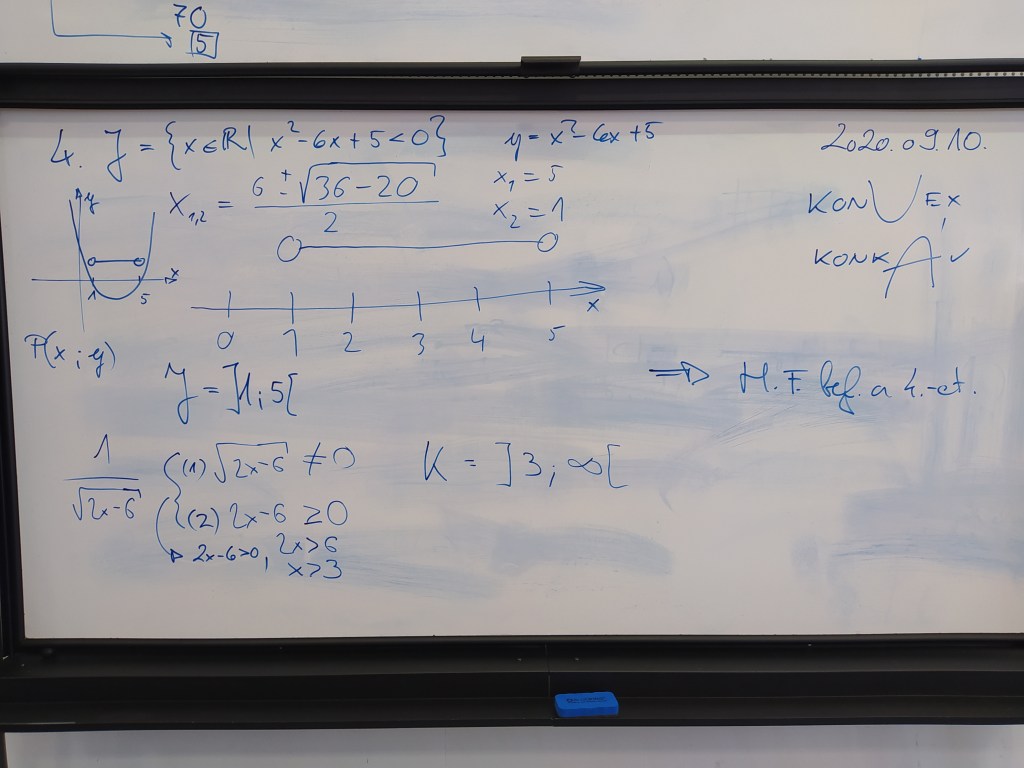 70
5
4. J = {x∈ℝ | x²-6x+5<0}
y = x²-6x+5
2020.09.10.
x₁,₂ = (6 ± √(36-20)) / 2
x₁ = 5
x₂ = 1
KONVEX
KONKÁV
y
x
1 5
0 1 2 3 4 5 x
P(x;y)
J = ]1;5[
⇒ H.F. bef. a 4.-et.
1/√(2x-6)
(1) √(2x-6) ≠ 0
K = ]3;∞[
(2) 2x-6 ≥ 0
2x-6>0, 2x>6
x>3